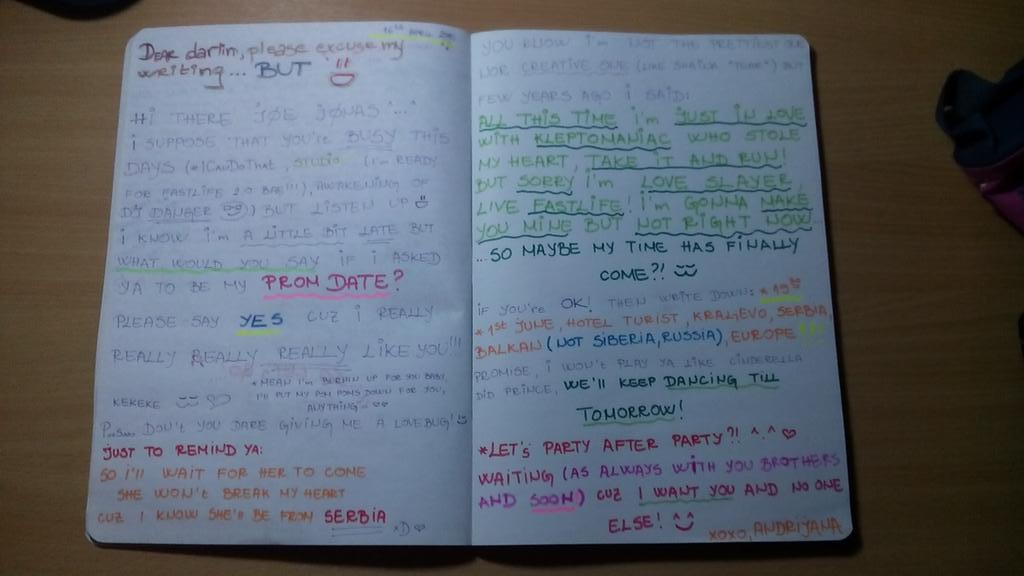 16th APRIL
DEAR darlin, please excuse my
writing... BUT
Hi THERE JOE JONAS ^...^
i SUPPOSE THAT YOU'RE BUSY THIS
DAYS (#ICanDoThat, STUDIO (i'm READY
FOR FASTLIFE 2.0 BAE!!!), AWAKENING OF
DJ DANGER) BUT LISTEN UP
i KNOW i'm A LITTLE BIT LATE BUT
WHAT WOULD YOU SAY IF i ASKED
YA TO BE MY PROM DATE?
PLEASE SAY YES CUZ i REALLY
REALLY REALLY REALLY LIKE YOU!!!
* MEAN I'M BURNIN UP FOR YOU BABY,
I'LL PUT MY POM POMS DOWN FOR YOU,
KEKEKE ANYTHING~
P.S. DON'T YOU DARE GIVING ME A LOVEBUG!
JUST TO REMIND YA:
SO i'll WAIT FOR HER TO COME
SHE WON'T BREAK MY HEART
CUZ I KNOW SHE'LL BE FROM SERBIA
xD ♡
YOU KNOW i'm NOT THE PRETTIEST ONE
NOR CREATIVE ONE (LIKE "TEAM") BUT
FEW YEARS AGO i SAID:
ALL THIS TIME i'm JUST IN LOVE
WITH KLEPTOMANIAC WHO STOLE
MY HEART, TAKE IT AND RUN!
BUT SORRY i'm LOVE SLAYER,
LIVE FASTLIFE! i'm GONNA MAKE
YOU MINE BUT NOT RIGHT NOW...
...SO MAYBE MY TIME HAS FINALLY
COME?!
IF YOU'RE OK! THEN WRITE DOWN: * 19
* 1st JUNE, HOTEL TURIST, KRALJEVO, SERBIA,
BALKAN (NOT SIBERIA, RUSSIA), EUROPE
PROMISE, i WON'T PLAY YA LIKE CINDERELLA
DID PRINCE, WE'LL KEEP DANCING TILL
TOMORROW!
*LET'S PARTY AFTER PARTY?! ^.^ ♡
WAITING (AS ALWAYS WITH YOU BROTHERS
AND SOON) CUZ I WANT YOU AND NO ONE
ELSE!
XOXO, ANDRIJANA